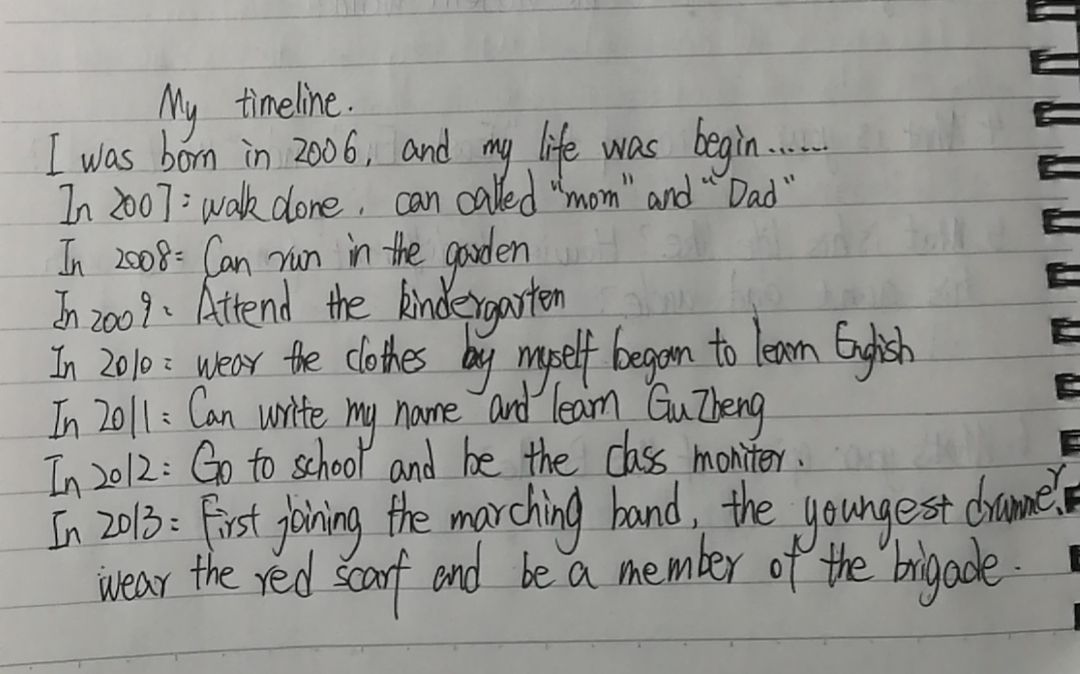 My timeline.
I was born in 2006, and my life was begin......
In 2007: walk done, can called "mom" and "Dad"
In 2008: Can run in the garden
In 2009: Attend the kindergarten
In 2010: wear the clothes by myself began to learn English
In 2011: Can write my name and learn GuZheng
In 2012: Go to school and be the class monitor.
In 2013: First joining the marching band, the youngest drummer,
wear the red scarf and be a member of the brigade.